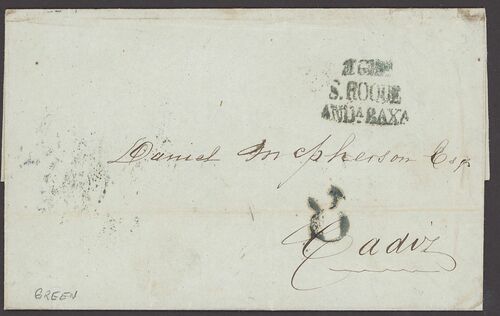 S. ROQUE
ANDA BAXA
Daniel McPherson Esqr
Cadiz
GREEN